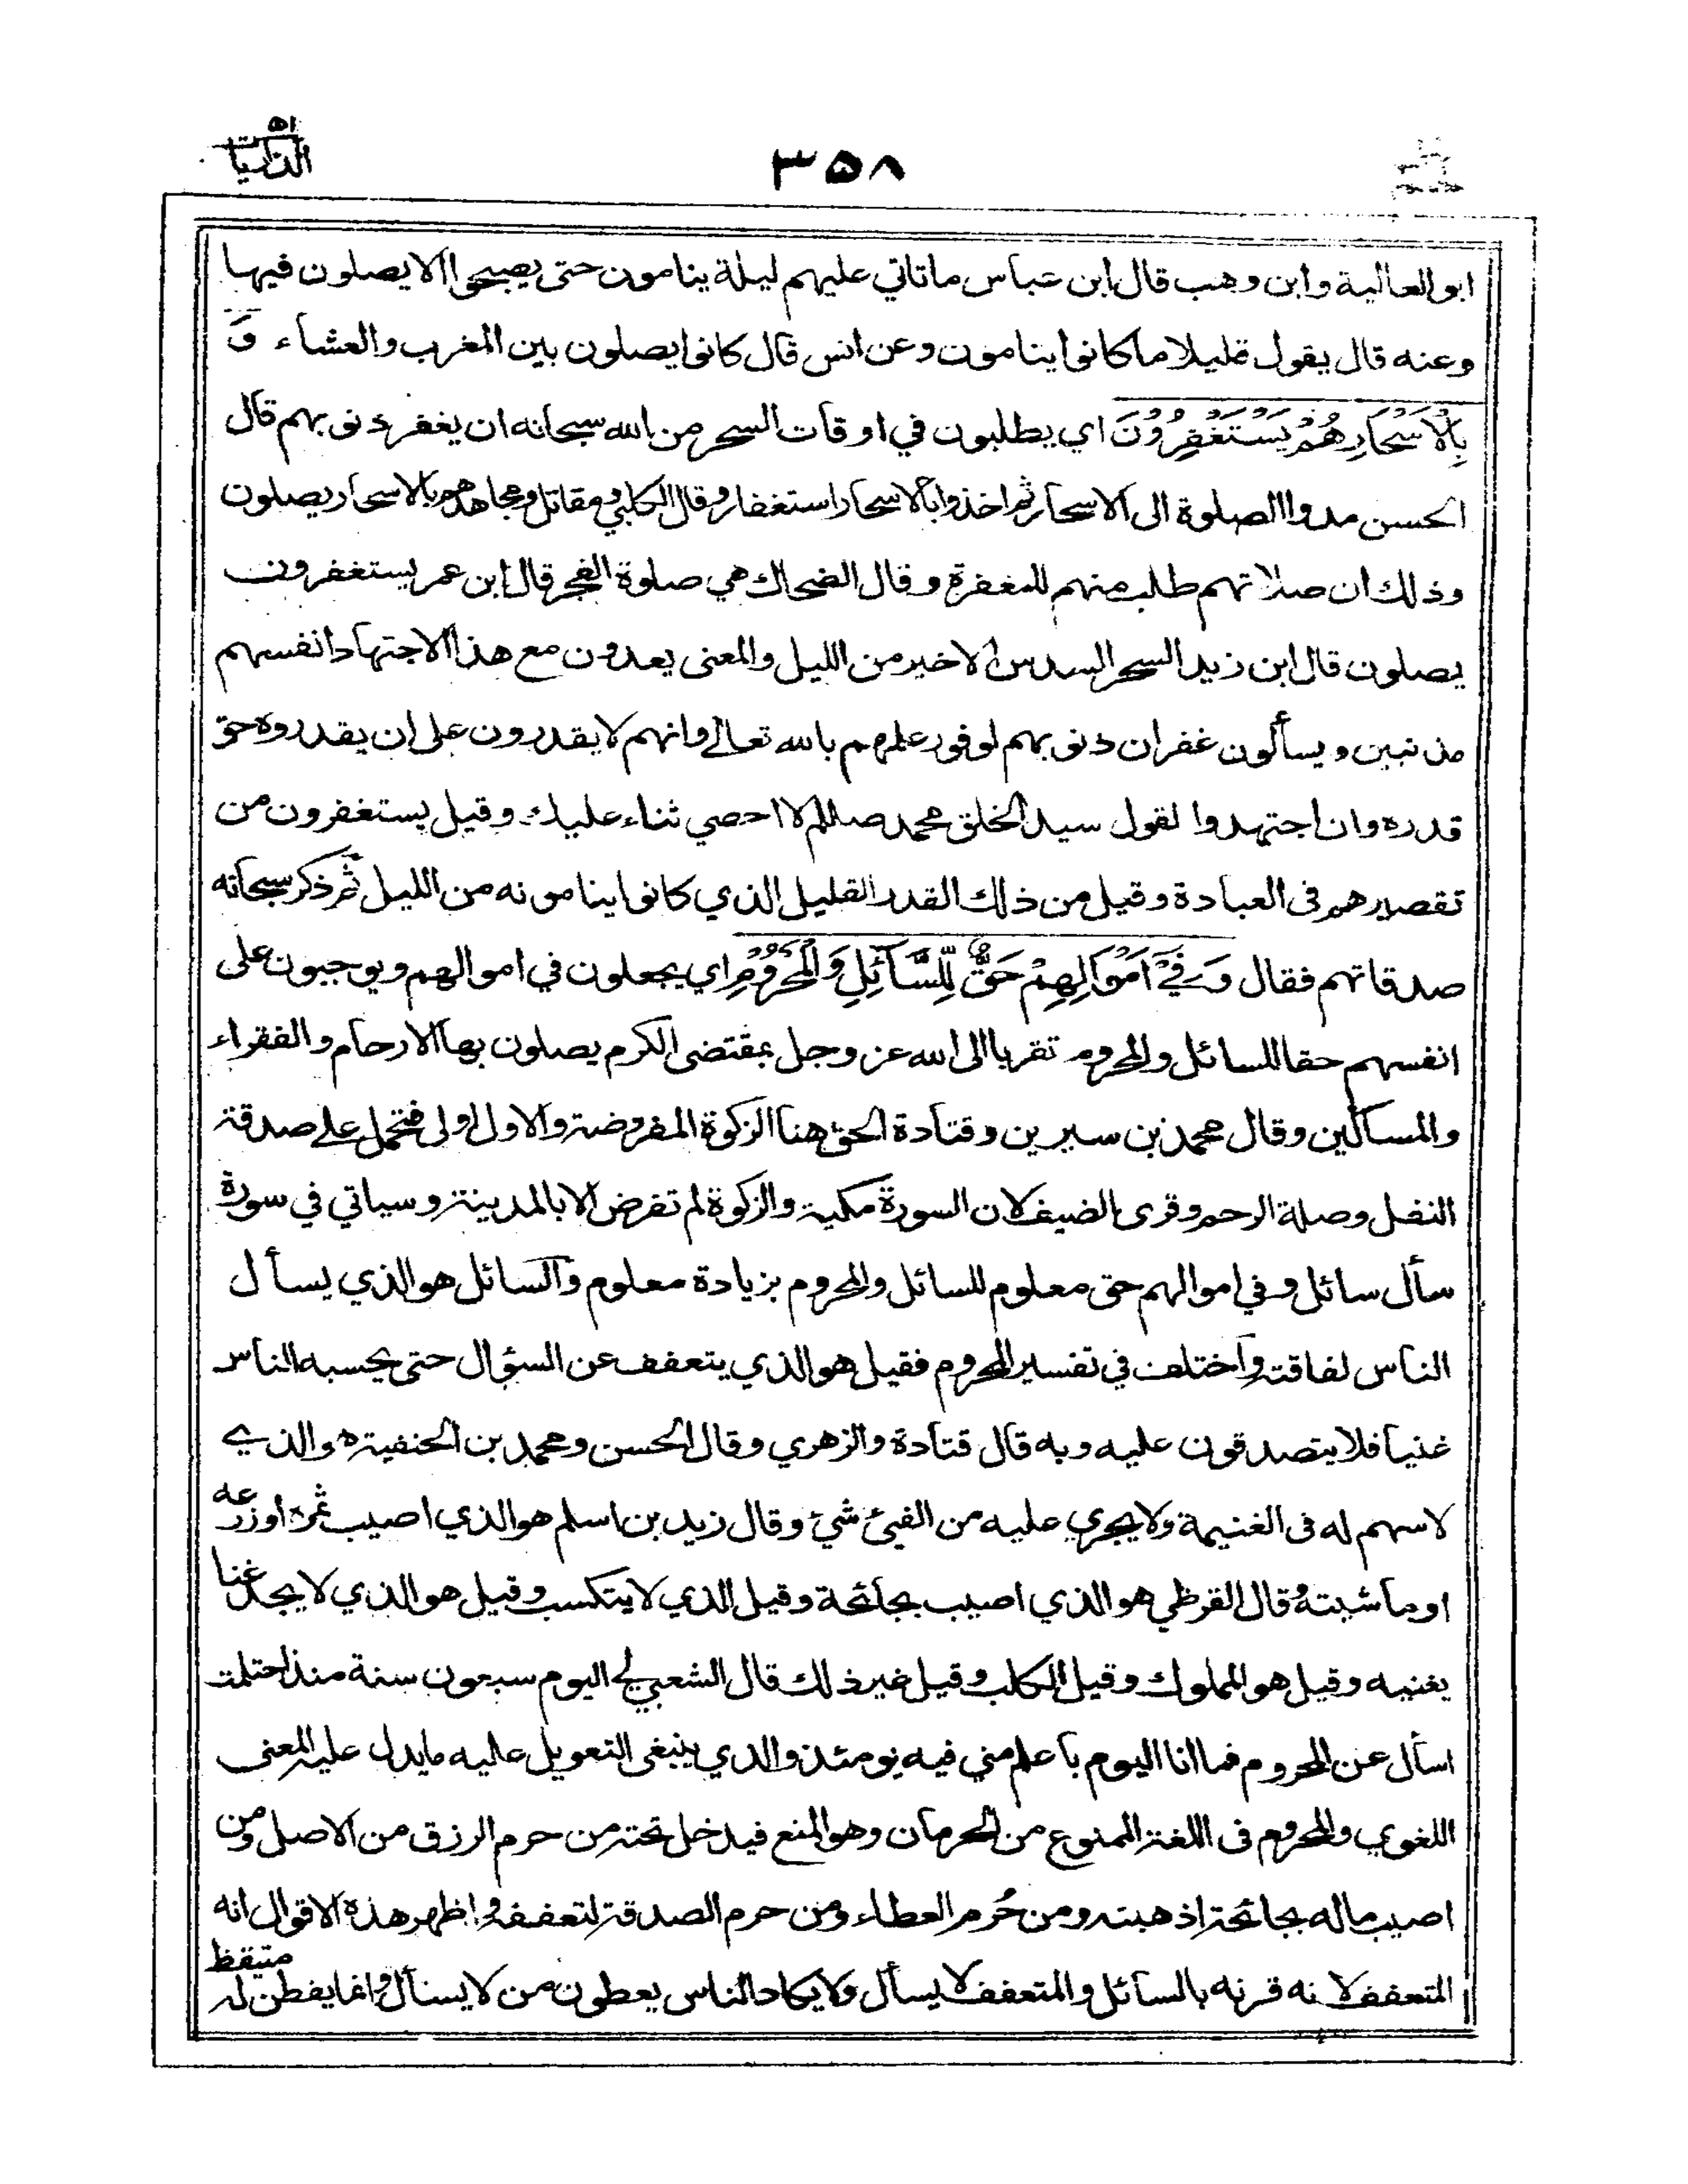 الذاريات ٥١
٣٥٨
ابو العالية وابن وهب قال ابن عباس ما تاتي عليهم ليلة ينامون حتى يصبحوا الا يصلون فيها
وعنه قال يقول قليلا ما كانوا ينامون وعن انس قال كانوا يصلون بين المغرب والعشاء وَ
بِالْاَسْحَارِ هُمْ يَسْتَغْفِرُوْنَ اي يطلبون في اوقات السحر من الله سبحانه ان يغفر ذنوبهم قال
الحسن مدوا الصلوة الى الاسحار ثم اخذوا بالاسحار استغفار وقال الكلبي ومقاتل ومجاهد هم بالاسحار يصلون
وذلك ان صلاتهم طلب منهم للمغفرة وقال الضحاك هي صلوة الفجر قال ابن عمر يستغفرون
يصلون قال ابن زيد السحر السدس الاخير من الليل والمعنى يعدون مع هذا الاجتهاد انفسهم
مذنبين ويسألون غفران ذنوبهم لوفور علمهم بالله تعالى وانهم لا يقدرون على ان يقدروه حق
قدره وان اجتهدوا لقول سيد الخلق محمد صللم لا احصي ثناء عليك وقيل يستغفرون من
تقصيرهم فى العبادة وقيل من ذلك القدر القليل الذي كانوا ينامونه من الليل ثم ذكر سبحانه
صدقاتهم فقال وَفِيْٓ اَمْوَالِهِمْ حَقٌّ لِّلسَّآئِلِ وَالْمَحْرُوْمِ اي يجعلون في اموالهم ويوجبون على
انفسهم حقا للسائل والمحروم تقربا الى الله عز وجل بمقتضى الكرم يصلون بها الارحام والفقراء
والمساكين وقال محمد بن سيرين وقتادة الحق هنا الزكوة المفروضة والاول اولى فتحمل على صدقة
النفل وصلة الرحم وقرى الضيف لان السورة مكية والزكوة لم تفرض الا بالمدينة وسياتي في سورة
سأل سائل وفي اموالهم حق معلوم للسائل والمحروم بزيادة معلوم والسائل هو الذي يسأل
الناس لفاقته واختلف في تفسير المحروم فقيل هو الذي يتعفف عن السؤال حتى يحسبه الناس
غنيا فلا يتصدقون عليه وبه قال قتادة والزهري وقال الحسن ومحمد بن الحنفية هو الذي
لا سهم له فى الغنيمة ولا يجري عليه من الفيئ شيئ وقال زيد بن اسلم هو الذي اصيب ثمره أو زرعه
او ماشيته وقال القرظي هو الذي اصيب بجائحة وقيل الذي لا يتكسب وقيل هو الذي لا يجد غنا
يغنيه وقيل هو المملوك وقيل الكلب وقيل غير ذلك قال الشعبي لي اليوم سبعون سنة منذ احتلمت
اسأل عن المحروم فما انا اليوم باعلم مني فيه يومئذ والذي ينبغى التعويل عليه ما يدل عليه المعنى
اللغوي والمحروم فى اللغة الممنوع من الحرمان وهو المنع فيدخل تحته من حرم الرزق من الاصل ومن
اصيب ماله بجائحة اذهبته ومن حُرم العطاء ومن حرم الصدقة لتعففه واظهر هذه الاقوال انه
المتعفف لانه قرنه بالسائل والمتعفف لا يسأل ولا يكاد الناس يعطون من لا يسأل وانما يفطن له متيقظ